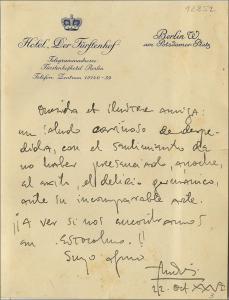 92852
Hotel „Der Fürstenhof"
Berlin W.
am Potsdamer Platz
Telegrammadresse
Fürstenhofhotel Berlin
Telefon: Zentrum
Querida et ilustre amiga:
un saludo cariñoso de despe-
dida, con el sentimiento de
no haber presenciado, anoche,
el éxito, el delirio germánico,
ante su incomparable arte.
¡¡A ver si nos encontramos
en Estocolmo!!
Suyo afmo
Andrés
Oct